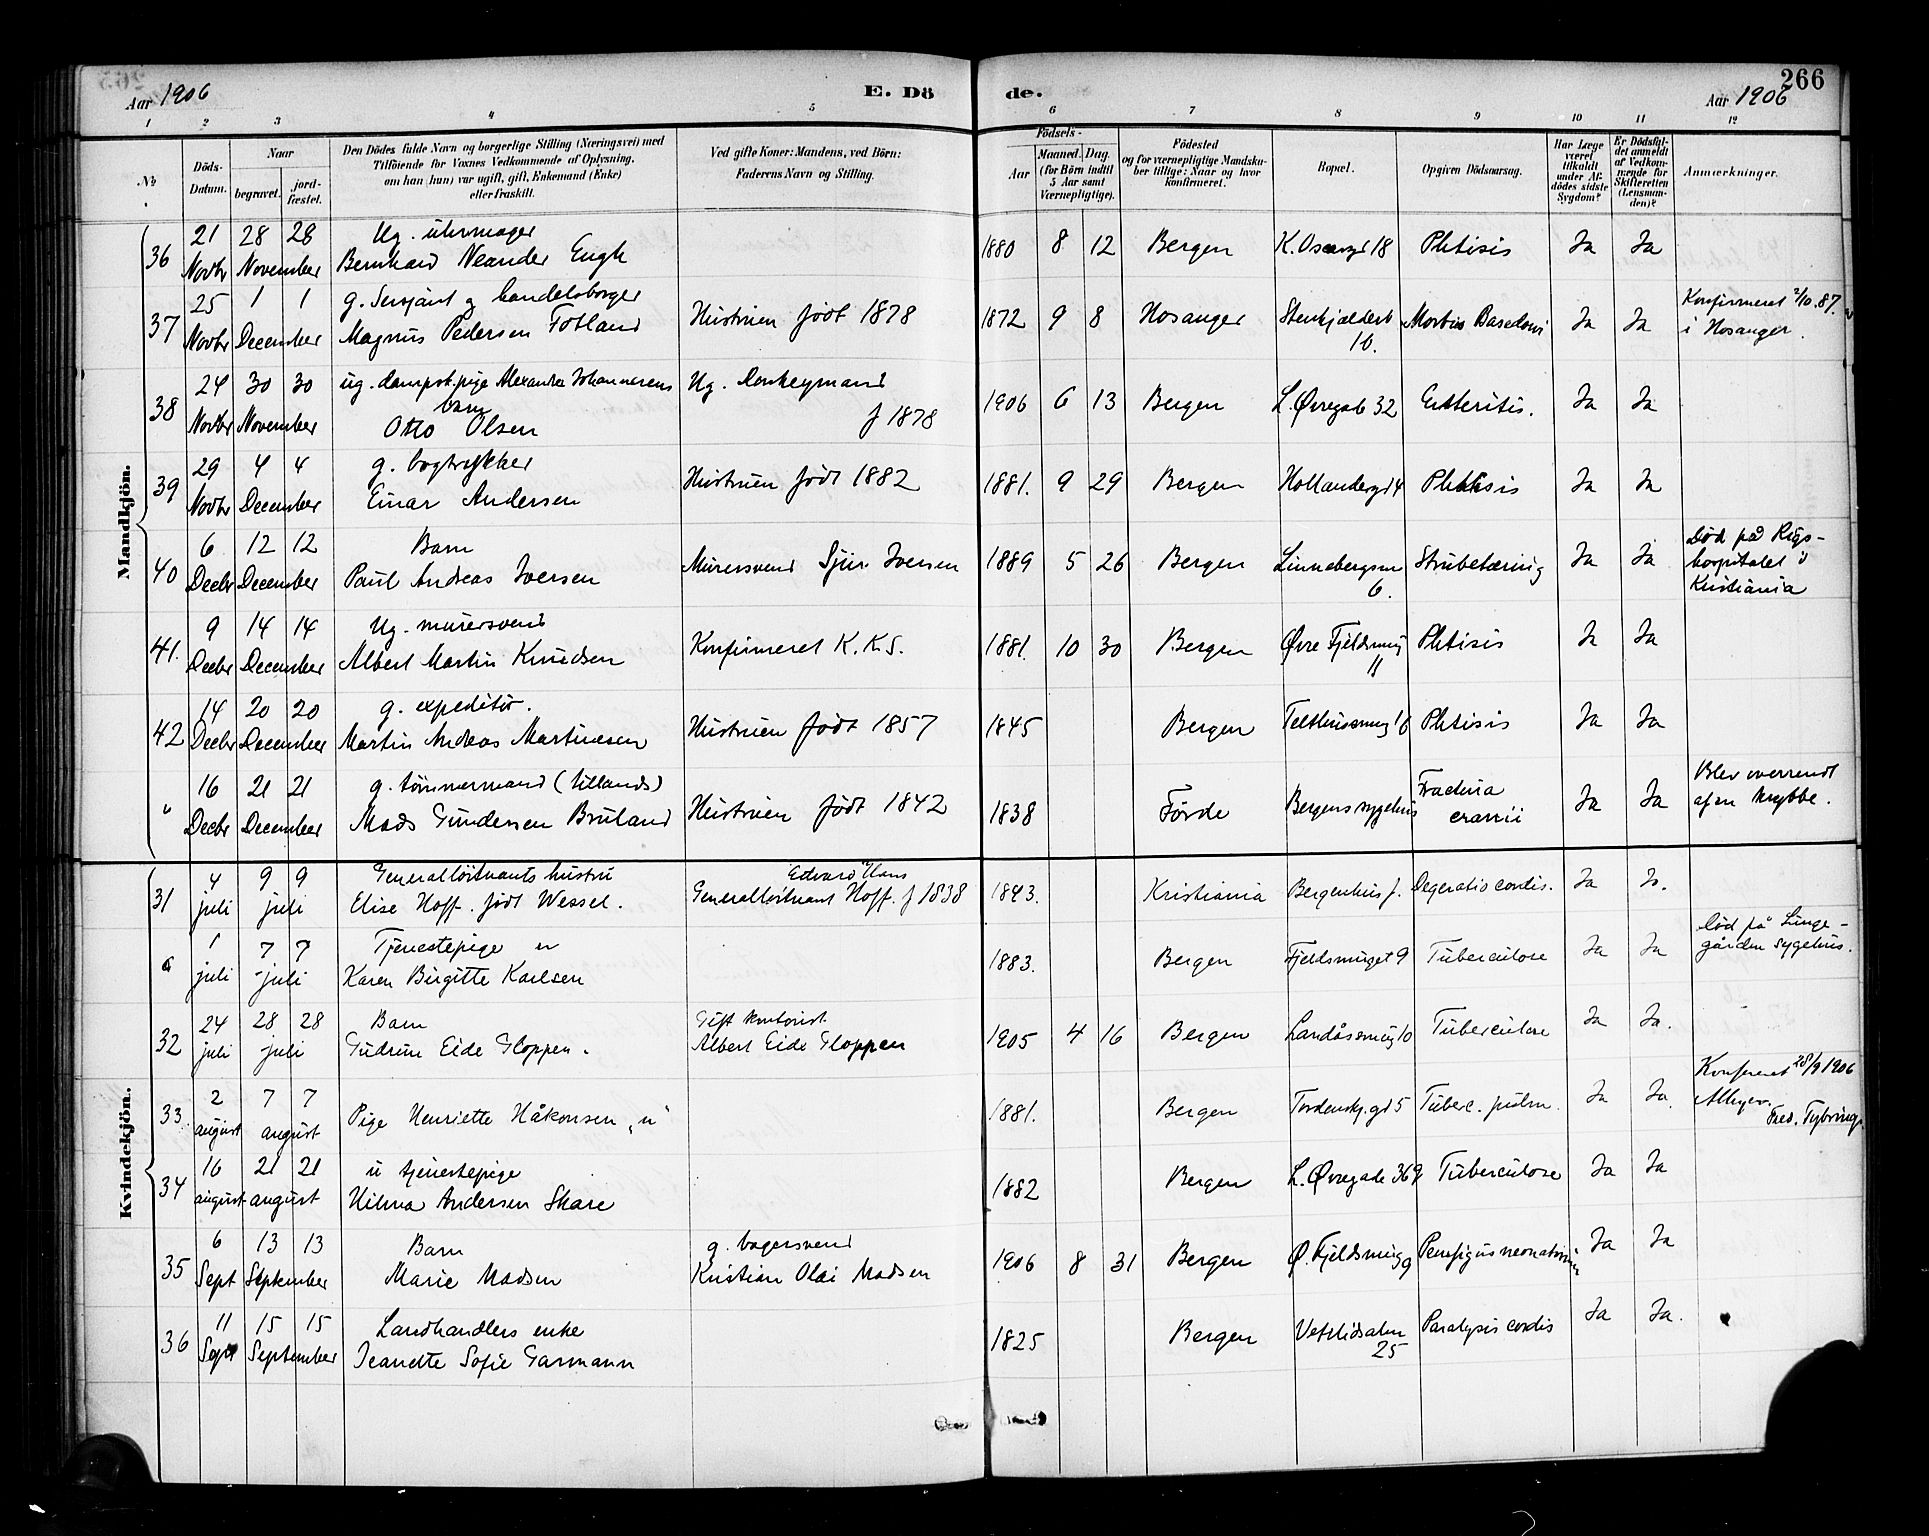 266
Aar 1906 E. Dö de. Aar 1906
1 2 3 4 5 6 7 8 9 10 11 12
No
Döds-Datum.
Naar
begravet.
jord-fæstet.
Den Dödes fulde Navn og borgerlige Stilling (Næringsvei) med
Tilföiende for Voxnes Vedkommende af Oplysning,
om han (hun) var ugift, gift, Enkemand (Enke)
eller fraskilt.
Ved gifte Koner: Mandens, ved Börn:
Faderens Navn og Stilling.
Födsels-
Aar
Maaned. Dag.
(for Börn indtil
5 Aar samt
Værnepligtige).
Födested
og for værnepligtige Mandskaber tillige: Naar og hvor
konfirmeret.
Bopæl.
Opgiven Dödsaarsag.
Har Læge
været
tilkaldt
under Afdödes sidste
Sygdom?
Er Dödsfaldet anmeldt
af Vedkommende for
Skifteretten
(Lensmanden)?
Anmærkninger.
Mandkjön.
36 21 28 28 Ug. uhrmager
Novbr November Bernhard Neander Engh 1880 8 12 Bergen K. Oscarsgd 18 Phtisis Ja Ja
37 25 1 1 g. Sersjant og handelsborger
Novbr December Magnus Pedersen Fotland Hustruen födt 1878 1872 9 8 Hosanger Stenkjælderb 16. Morbus Basedowi Ja Ja Konfirmeret 2/10.87.
i Hosanger.
38 24 30 30 ug. dampsk.pige Alexandra Johannesens
barn
Novbr November Otto Olsen Ug. Donkeymand
f 1878 1906 6 13 Bergen L. Øvregade 32 Enteritis. Ja Ja
39 29 4 4 g. bogtrykker
Novbr December Einar Andersen Hustruen født 1882 1881. 9 29 Bergen Hollandergd 4 Phtisis Ja Ja
40 6 12 12 Barn
Decbr December Paul Andreas Iversen Murersvend Sjur Iversen 1889 5 26 Bergen Linnebergsm 6. Strubetæring Ja Ja Död på Rigs-
hospitalet i
Kristiania
41. 9 14 14 Ug. murersvend
Decbr December Albert Martin Knudsen Konfirmeret K. K. S. 1881. 10 30 Bergen Øvre Fjeldsmug 11 Phtisis Ja Ja
42 14 20 20 g. expeditör.
Decbr December Martin Andreas Martinesen Hustruen födt 1857 1845 Bergen Telthussmug 16 Phtisis Ja Ja
" 16 21 21 g. tömmermand (Utlands)
Decbr December Mads Gundersen Bruland Hustruen födt 1842 1838 Förde Bergens sygehus Fractura
cranii Ja Ja Blev overrendt
af en krybbe.
Kvindekjön.
31 4 9 9 Generalløitnants hustru
juli juli Elise Hoff. født Wessel. Edvard Hans
Generalløitnant Hoff. f 1838 1843. Kristiania Bergenhus f. Degeratio cordis. Ja Ja.
" 1 7 7 Tjenestepige u
juli juli Karen Birgitte Karlsen 1883. Bergen Fjeldsmuget 9 Tuberculose Ja Ja Död på Lunge-
gården sygehus.
32 24 28 28 Barn
juli juli Gudrun Eide Gloppen. Gift kontorist
Albert Eide Gloppen 1905 4 16 Bergen Landåssmug 10 Tuberculose Ja Ja.
33 2 7 7
august august Pige Henriette Håkonsen "u" 1881. Bergen Tordenskj. gd 5 Tuberc. pulm. Ja Ja. Konfereret 28/9 1906
Fred. Tybring.
34 16 21 21 u tjenestepige
august august Hilma Andersen Skare 1882 Bergen L. Øvregade 36 Tuberculose Ja Ja
35 6 13 13 Barn
Sept September Marie Madsen g. bagersvend
Kristian Olai Madsen 1906 8 31 Bergen Ø. Fjeldsmug 9 Pemfigus neonatorum Ja Ja
36 11 15 15 Landhandlers enke
Sept September Jeanette Sofie Garmann 1825 Bergen Vetrlidsalm 25 Paralysis cordis Ja Ja.